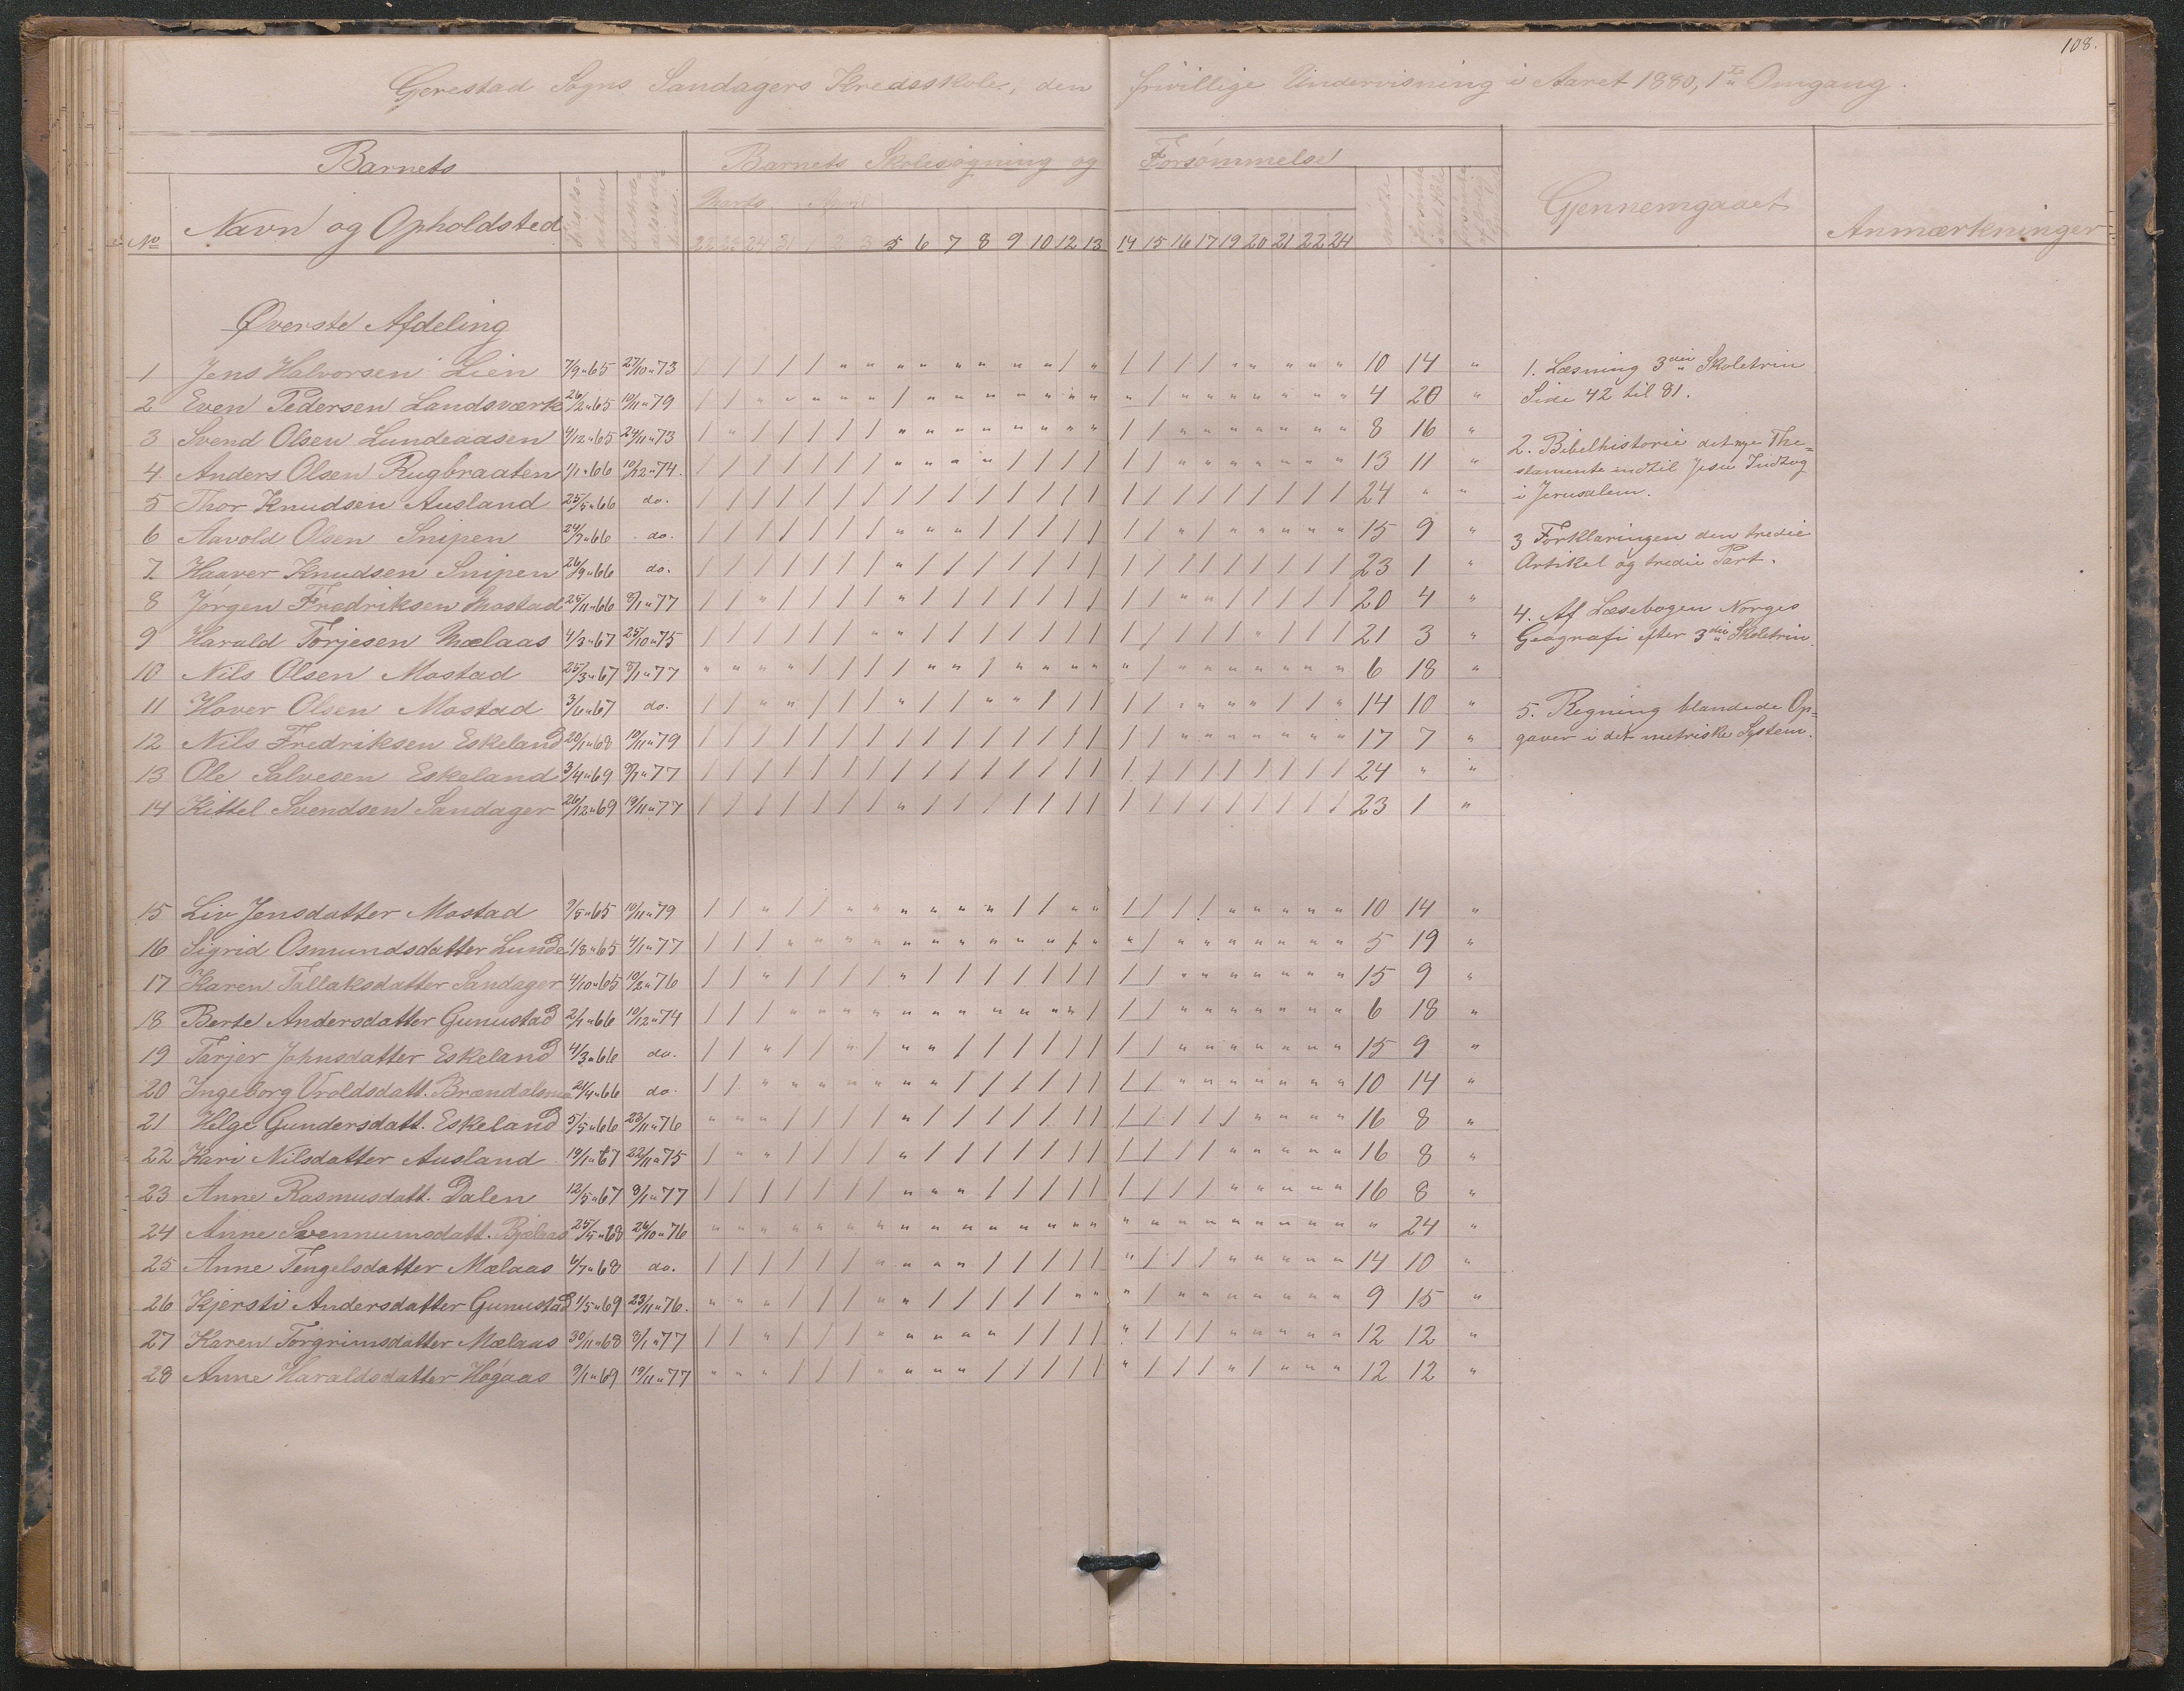 108.
Gjerestad Sogns Sandagers Kredsskole, den frivillige Undervisning i Aaret 1880, 1ste Omgang.
Barnets Barnets Skolesøgning og Forsømmelse
Marts April
No Navn og Opholdsted Gjennemgaaet Anmærkninger
22 23 24 31 1 2 3 5 6 7 8 9 10 12 13 14 15 16 17 19 20 21 22 24
Øverste Afdeling
1 Jens Halvorsen Lien 7/9 " 65 27/10 " 73 / / / / / " " " " " " " " / " / / / / " " " " " 10 14 "
2 Even Pedersen Landsværk 26/2 " 65 10/11 " 79 / / " " " " " / " " " " " " " " / " " " " " " " 4 20 "
3 Svend Olsen Lundeaasen 4/12 " 65 24/11 " 73 / " / / / / / " " " " " " " " / / " " " " " " " 8 16 "
4 Anders Olsen Rugbraaten 1/1 " 66 10/12 " 74. / / / / / / / " " " " / / / / / / " " " " " " " 13 11 "
5 Thor Knudsen Ausland 25/5 " 66 do. / / / / / / / / / / / / / / / / / / / / / / / / 24 " "
6 Aavold Olsen Snipen 24/7 " 66 do. / / / / / / / " " " / / / / / / / " / " " " " " 15 9 "
7 Haaver Knudsen Snipen 26/9 " 66 do. / / / / / / / " / / / / / / / / / / / / / / / / 23 1 "
8 Jørgen Fredriksen Mostad 25/11 " 66 8/1 " 77 / / " / / / / " / / / / / / / / / " " / / / / / 20 4 "
9 Harald Torjesen Mælaas 4/3 " 67 25/10 " 75 / / / / / / " " / / / / / / / / / / / / " / / / 21 3 "
10 Nils Olsen Mostad 25/3 " 67 8/1 " 77 " " " " / / / / " " / " " " " " / " " " " " " " 6 18 "
11 Hover Olsen Mostad 3/6 " 67 do. / / " " / / / " / / " " / / / / / " " " " / / " 14 10 "
12 Nils Fredriksen Eskeland 20/1 " 68 10/11 " 79 / / / / / / / / / / / / / / / / / " " " " " " " 17 7 "
13 Ole Salvesen Eskeland 3/4 " 69 8/1 " 77 / / / / / / / / / / / / / / / / / / / / / / / / 24 " "
14 Kittel Svendsen Sandager 26/12 " 69 19/11 " 77 / / / / / / / " / / / / / / / / / / / / / / / / 23 1 "
15 Liv Jensdatter Mostad 9/5 " 65 10/11 " 79 / / " / / " " " " " " / / " " / / / / " " " " " 10 14 "
16 Sigrid Osmundsdatter Lunde 1/8 " 65 4/1 " 77 / / / " " " " " " " " " " / " " / " " " " " " " 5 19 "
17 Karen Tallaksdatter Sandager 4/10 " 65 10/2 " 76 / / " / / / / " / / / / / / / / / " " " " " " " 15 9 "
18 Berte Andersdatter Gunustad 2/1 " 66 10/12 " 74 / / / " " " " " " " " " " " / / / " " " " " " " 6 18 "
19 Tarjer Johnsdatter Eskeland 4/3 " 66 do. / / " / / " / " " / / / / / / / / " " " " " " " 15 9 "
20 Ingeborg Vroldsdatt. 21/4 " 66 do. / / " " " " " " " / / / / / / / / " " " " " " " 10 14 "
21 Helge Gundersdatt. Eskeland 5/5 " 66 23/11 " 76 " " " / / / / " / / / / / / / / / / / / " " " " 16 8 "
22 Kari Nilsdatter Ausland 19/1 " 67 22/11 " 75 / " " / / / / " / / / / / / / / / / / " " " " " 16 8 "
23 Anne Rasmusdatt. Dalen 12/5 " 67 8/1 " 77 / / / / / / / " " " / / / / / / / / / " " " " " 16 8 "
24 Anne Svennumsdatt. Bjelaas 25/5 " 68 26/10 " 76 " " " " " " " " " " " " " " " " " " " " " " " " " 24 "
25 Anne Tengelsdatter Mælaas 6/7 " 68 do. / / / / / / " " " " / / / / / " / / / " " " " " 14 10 "
26 Kjersti Andersdatter Gunustad 1/5 " 69 23/11 " 76. " " " / / / " " / / / / / " " " / " " " " " " " 9 15 "
27 Karen Torgrimsdatter Mælaas 30/11 " 68 8/1 " 77 / / " / / / " " " " " / / / / " / / / " " " " " 12 12 "
28 Anne Haraldsdatter Høgaas 9/1 " 69 19/11 " 77 " " " / / / " " " " / / / / / " / / / " / " " " 12 12 "
1. Læsning 3die Skoletrin
Side 42 til 81.
2. Bibelhistorie det nye The=
stamente indtil Jesu Indtog
i Jerusalem.
3 Forklaringen den tredie
Artikel og tredie Part.
4. Af Læsebogen Norges
Geografi efter 3die Skoletrin.
5. Regning blandede Op=
gaver i det metriske System.